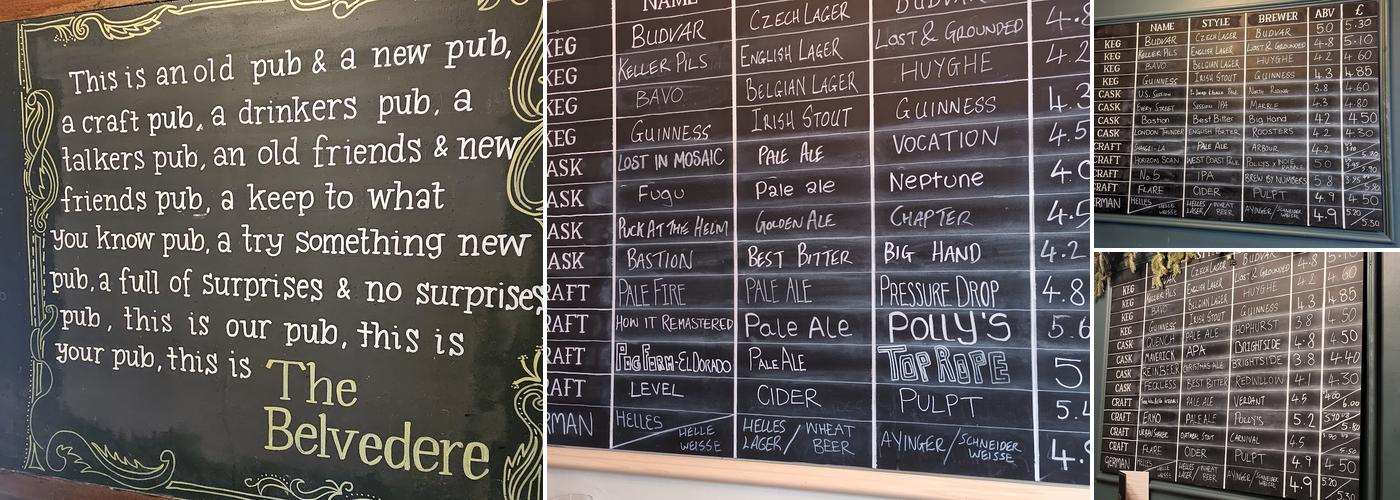 This is an old pub & a new pub,
a craft pub, a drinkers pub, a
talkers pub, an old friends & new
friends pub, a keep to what
you know pub, a try something new
pub, a full of surprises & no surprises
pub, this is our pub, this is
your pub, this is The
Belvedere
NAME BUDVAR
KEG BUDVAR CZECH LAGER LOST & GROUNDED 4.8
KEG KELLER PILS ENGLISH LAGER HUYGHE 4.2
KEG BAVO BELGIAN LAGER GUINNESS 4.3
KEG GUINNESS IRISH STOUT VOCATION 4.5
ASK LOST IN MOSAIC PALE ALE Neptune 4.0
ASK Fugu Pale ale CHAPTER 4.5
ASK PUCK AT THE HELM GOLDEN ALE BIG HAND 4.2
ASK BASTION BEST BITTER PRESSURE DROP 4.8
RAFT PALE FIRE PALE ALE POLLY'S 5.6
RAFT HOW IT REMASTERED Pale Ale TOP ROPE 5
RAFT PUG FARM-EL DORADO PALE ALE PULPT 5.4
RAFT LEVEL CIDER
RMAN HELLES / HELLE WEISSE HELLES LAGER / WHEAT BEER AYINGER / SCHNEIDER WEISSE 4.9
NAME STYLE BREWER ABV £
KEG BUDVAR CZECH LAGER BUDVAR 5.0 5.30
KEG KELLER PILS ENGLISH LAGER LOST & GROUNDED 4.8 5.10
KEG BAVO BELGIAN LAGER HUYGHE 4.2 4.60
KEG GUINNESS IRISH STOUT GUINNESS 4.3 4.85
CASK U.S. SESSION NORTH RIDING 3.8 4.60
CASK EVERY STREET SESSION IPA MARBLE 4.3 4.80
CASK Bastion Best Bitter Big Hand 4.2 4.50
CASK LONDON THUNDER ENGLISH PORTER ROOSTERS 4.2 4.30
CRAFT SHANGRI-LA PALE ALE ARBOUR 4.2
CRAFT HORIZON SCAN WEST COAST PALE POLLY'S x 5.0
CRAFT No 5 IPA BREW BY NUMBERS 5.8
CRAFT FLARE CIDER PULPT 4.9 4.50
ERMAN HELLES / HELLE WEISSE HELLES LAGER / WHEAT BEER AYINGER / SCHNEIDER WEISSE 4.9 5.20 / 5.30
KEG CZECH LAGER
KEG KELLER PILS ENGLISH LAGER LOST & GROUNDED 4.8
KEG BAVO BELGIAN LAGER HUYGHE 4.60
KEG GUINNESS IRISH STOUT GUINNESS 4.3 4.85
CASK QUENCH PALE ALE HOPHURST 3.8 4.50
CASK MAVERICK APA BRIGHTSIDE 4.8 4.50
CASK REINBEER CHRISTMAS ALE BRIGHTSIDE 3.8 4.40
CASK FECKLESS BEST BITTER REDWILLOW 4.1 4.30
CRAFT PALE ALE VERDANT 4.5
CRAFT ERKO PALE ALE POLLY'S 5.2
CRAFT OATMEAL STOUT CARNIVAL 4.5
CRAFT FLARE CIDER PULPT 4.9 4.50
GERMAN HELLES / HELLE WEISSE HELLES LAGER / WHEAT BEER AYINGER / SCHNEIDER WEISSE 4.9 5.20 / 5.30